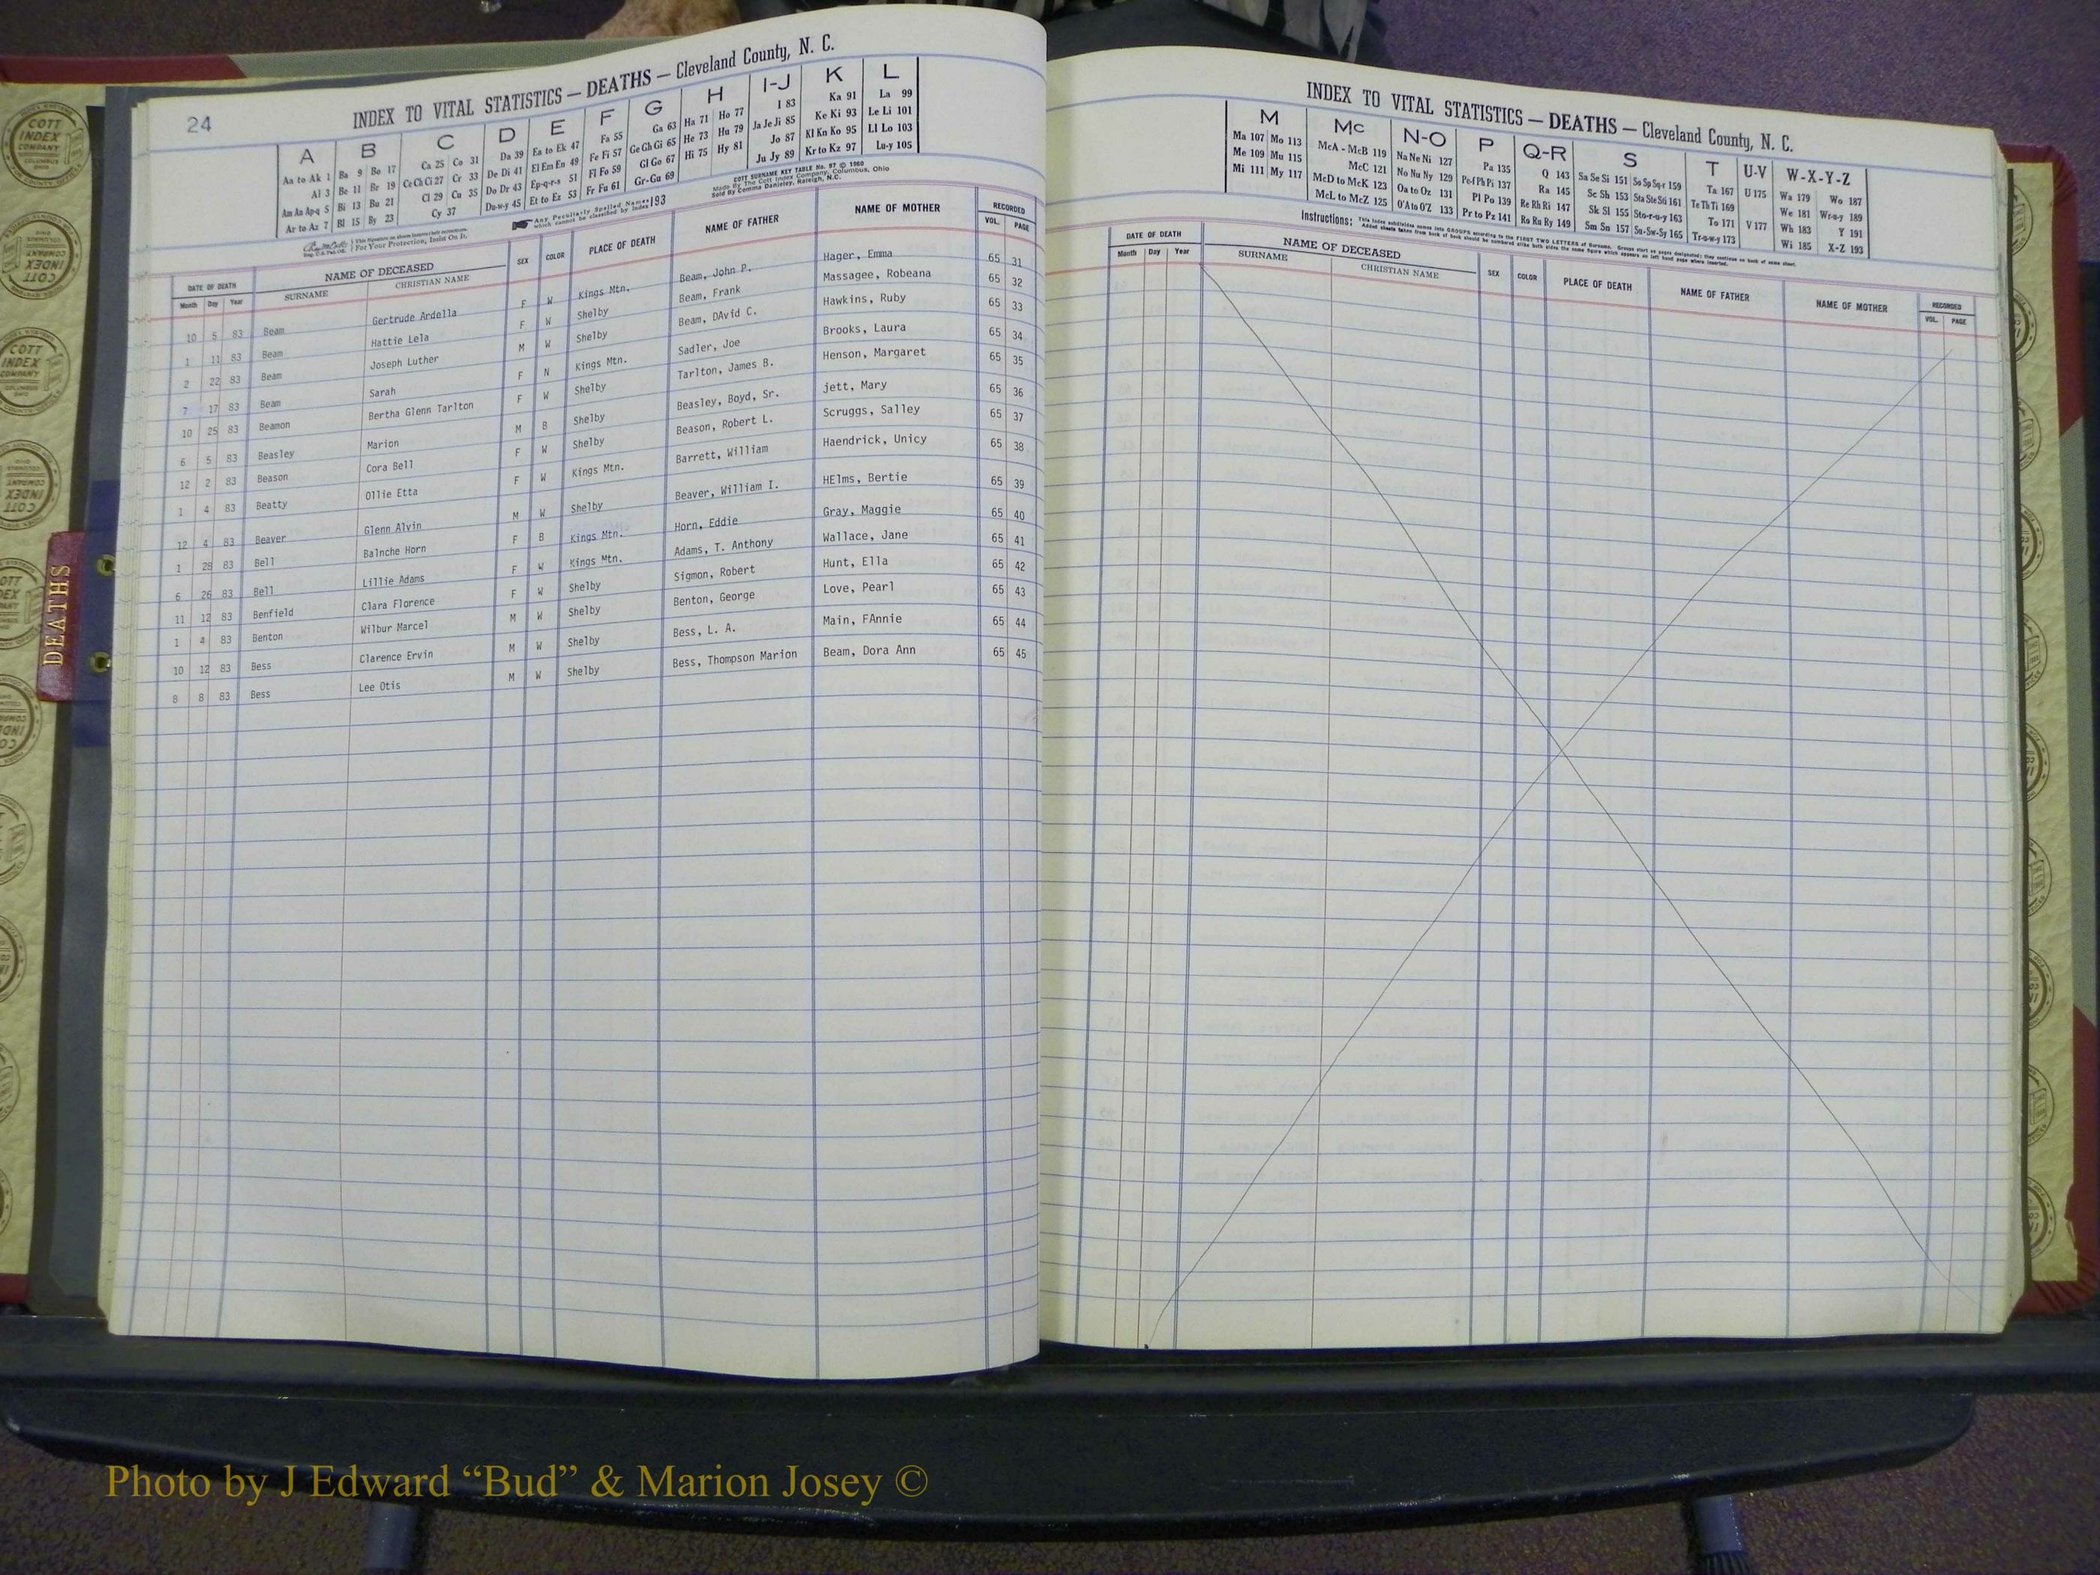 24
INDEX TO VITAL STATISTICS — DEATHS — Cleveland County, N. C.
A B C D E F G H I-J K L
Aa to Ak 1 Ba 9 Bo 17 Ca 25 Co 31 Da 39 Ea to Ek 47 Fa 55 Ga 63 Ha 71 Ho 77 I 83 Ka 91 La 99
Al 3 Be 11 Br 19 Ce Ch Ci 27 Cr 33 De Di 41 El Em En 49 Fe Fi 57 Ge Gh Gi 65 He 73 Hu 79 Ja Je Ji 85 Ke Ki 93 Le Li 101
Am An Ap-q 5 Bi 13 Bu 21 Cl 29 Cu 35 Do Dr 43 Ep-q-r-s 51 Fl Fo 59 Gl Go 67 Hi 75 Hy 81 Jo 87 Kl Kn Ko 95 Ll Lo 103
Ar to Az 7 Bl 15 By 23 Cy 37 Du-w-y 45 Et to Ez 53 Fr Fu 61 Gr-Gu 69 Ju Jy 89 Kr to Kz 97 Lu-y 105
COTT SURNAME KEY TABLE No. 97 © 1960
Made By The Cott Index Company, Columbus, Ohio
Any Peculiarly Spelled Names which cannot be classified by index 193
For Your Protection, Insist On It.
DATE OF DEATH NAME OF DECEASED SEX COLOR PLACE OF DEATH NAME OF FATHER NAME OF MOTHER RECORDED
Month Day Year SURNAME CHRISTIAN NAME VOL. PAGE
10 5 83 Beam Gertrude Ardella F W Kings Mtn. Beam, John P. Hager, Emma 65 31
1 11 83 Beam Hattie Lela F W Shelby Beam, Frank Massagee, Robeana 65 32
2 22 83 Beam Joseph Luther M W Shelby Beam, DAvid C. Hawkins, Ruby 65 33
7 17 83 Beam Sarah F N Kings Mtn. Sadler, Joe Brooks, Laura 65 34
10 25 83 Beamon Bertha Glenn Tarlton F W Shelby Tarlton, James B. Henson, Margaret 65 35
6 5 83 Beasley Marion M B Shelby Beasley, Boyd, Sr. jett, Mary 65 36
12 2 83 Beason Cora Bell F W Shelby Beason, Robert L. Scruggs, Salley 65 37
1 4 83 Beatty Ollie Etta F W Kings Mtn. Barrett, William Haendrick, Unicy 65 38
12 4 83 Beaver Glenn Alvin M W Shelby Beaver, William I. HElms, Bertie 65 39
1 28 83 Bell Balnche Horn F B Kings Mtn. Horn, Eddie Gray, Maggie 65 40
6 26 83 Bell Lillie Adams F W Kings Mtn. Adams, T. Anthony Wallace, Jane 65 41
11 12 83 Benfield Clara Florence F W Shelby Sigmon, Robert Hunt, Ella 65 42
1 4 83 Benton Wilbur Marcel M W Shelby Benton, George Love, Pearl 65 43
10 12 83 Bess Clarence Ervin M W Shelby Bess, L. A. Main, FAnnie 65 44
8 8 83 Bess Lee Otis M W Shelby Bess, Thompson Marion Beam, Dora Ann 65 45
INDEX TO VITAL STATISTICS — DEATHS — Cleveland County, N. C.
M Mc N-O P Q-R S T U-V W-X-Y-Z
Ma 107 Mo 113 McA - McB 119 Na Ne Ni 127 Pa 135 Q 143 Sa Se Si 151 So Sp Sq-r 159 Ta 167 U 175 Wa 179 Wo 187
Me 109 Mu 115 McC 121 No Nu Ny 129 Pe-f Ph Pi 137 Ra 145 Sc Sh 153 Sta Ste Sti 161 Te Th Ti 169 We 181 Wr-u-y 189
Mi 111 My 117 McD to McK 123 Oa to Oz 131 Pl Po 139 Re Rh Ri 147 Sk Sl 155 Sto-r-u-y 163 To 171 V 177 Wh 183 Y 191
McL to McZ 125 O'A to O'Z 133 Pr to Pz 141 Ro Ru Ry 149 Sm Sn 157 Su-Sw-Sy 165 Tr-u-w-y 173 Wi 185 X-Z 193
Instructions: This index subdivides names into GROUPS according to the FIRST TWO LETTERS of Surname.
DATE OF DEATH NAME OF DECEASED SEX COLOR PLACE OF DEATH NAME OF FATHER NAME OF MOTHER RECORDED
Month Day Year SURNAME CHRISTIAN NAME VOL. PAGE
DEATHS
COTT INDEX COMPANY COLUMBUS OHIO
Photo by J Edward “Bud” & Marion Josey ©